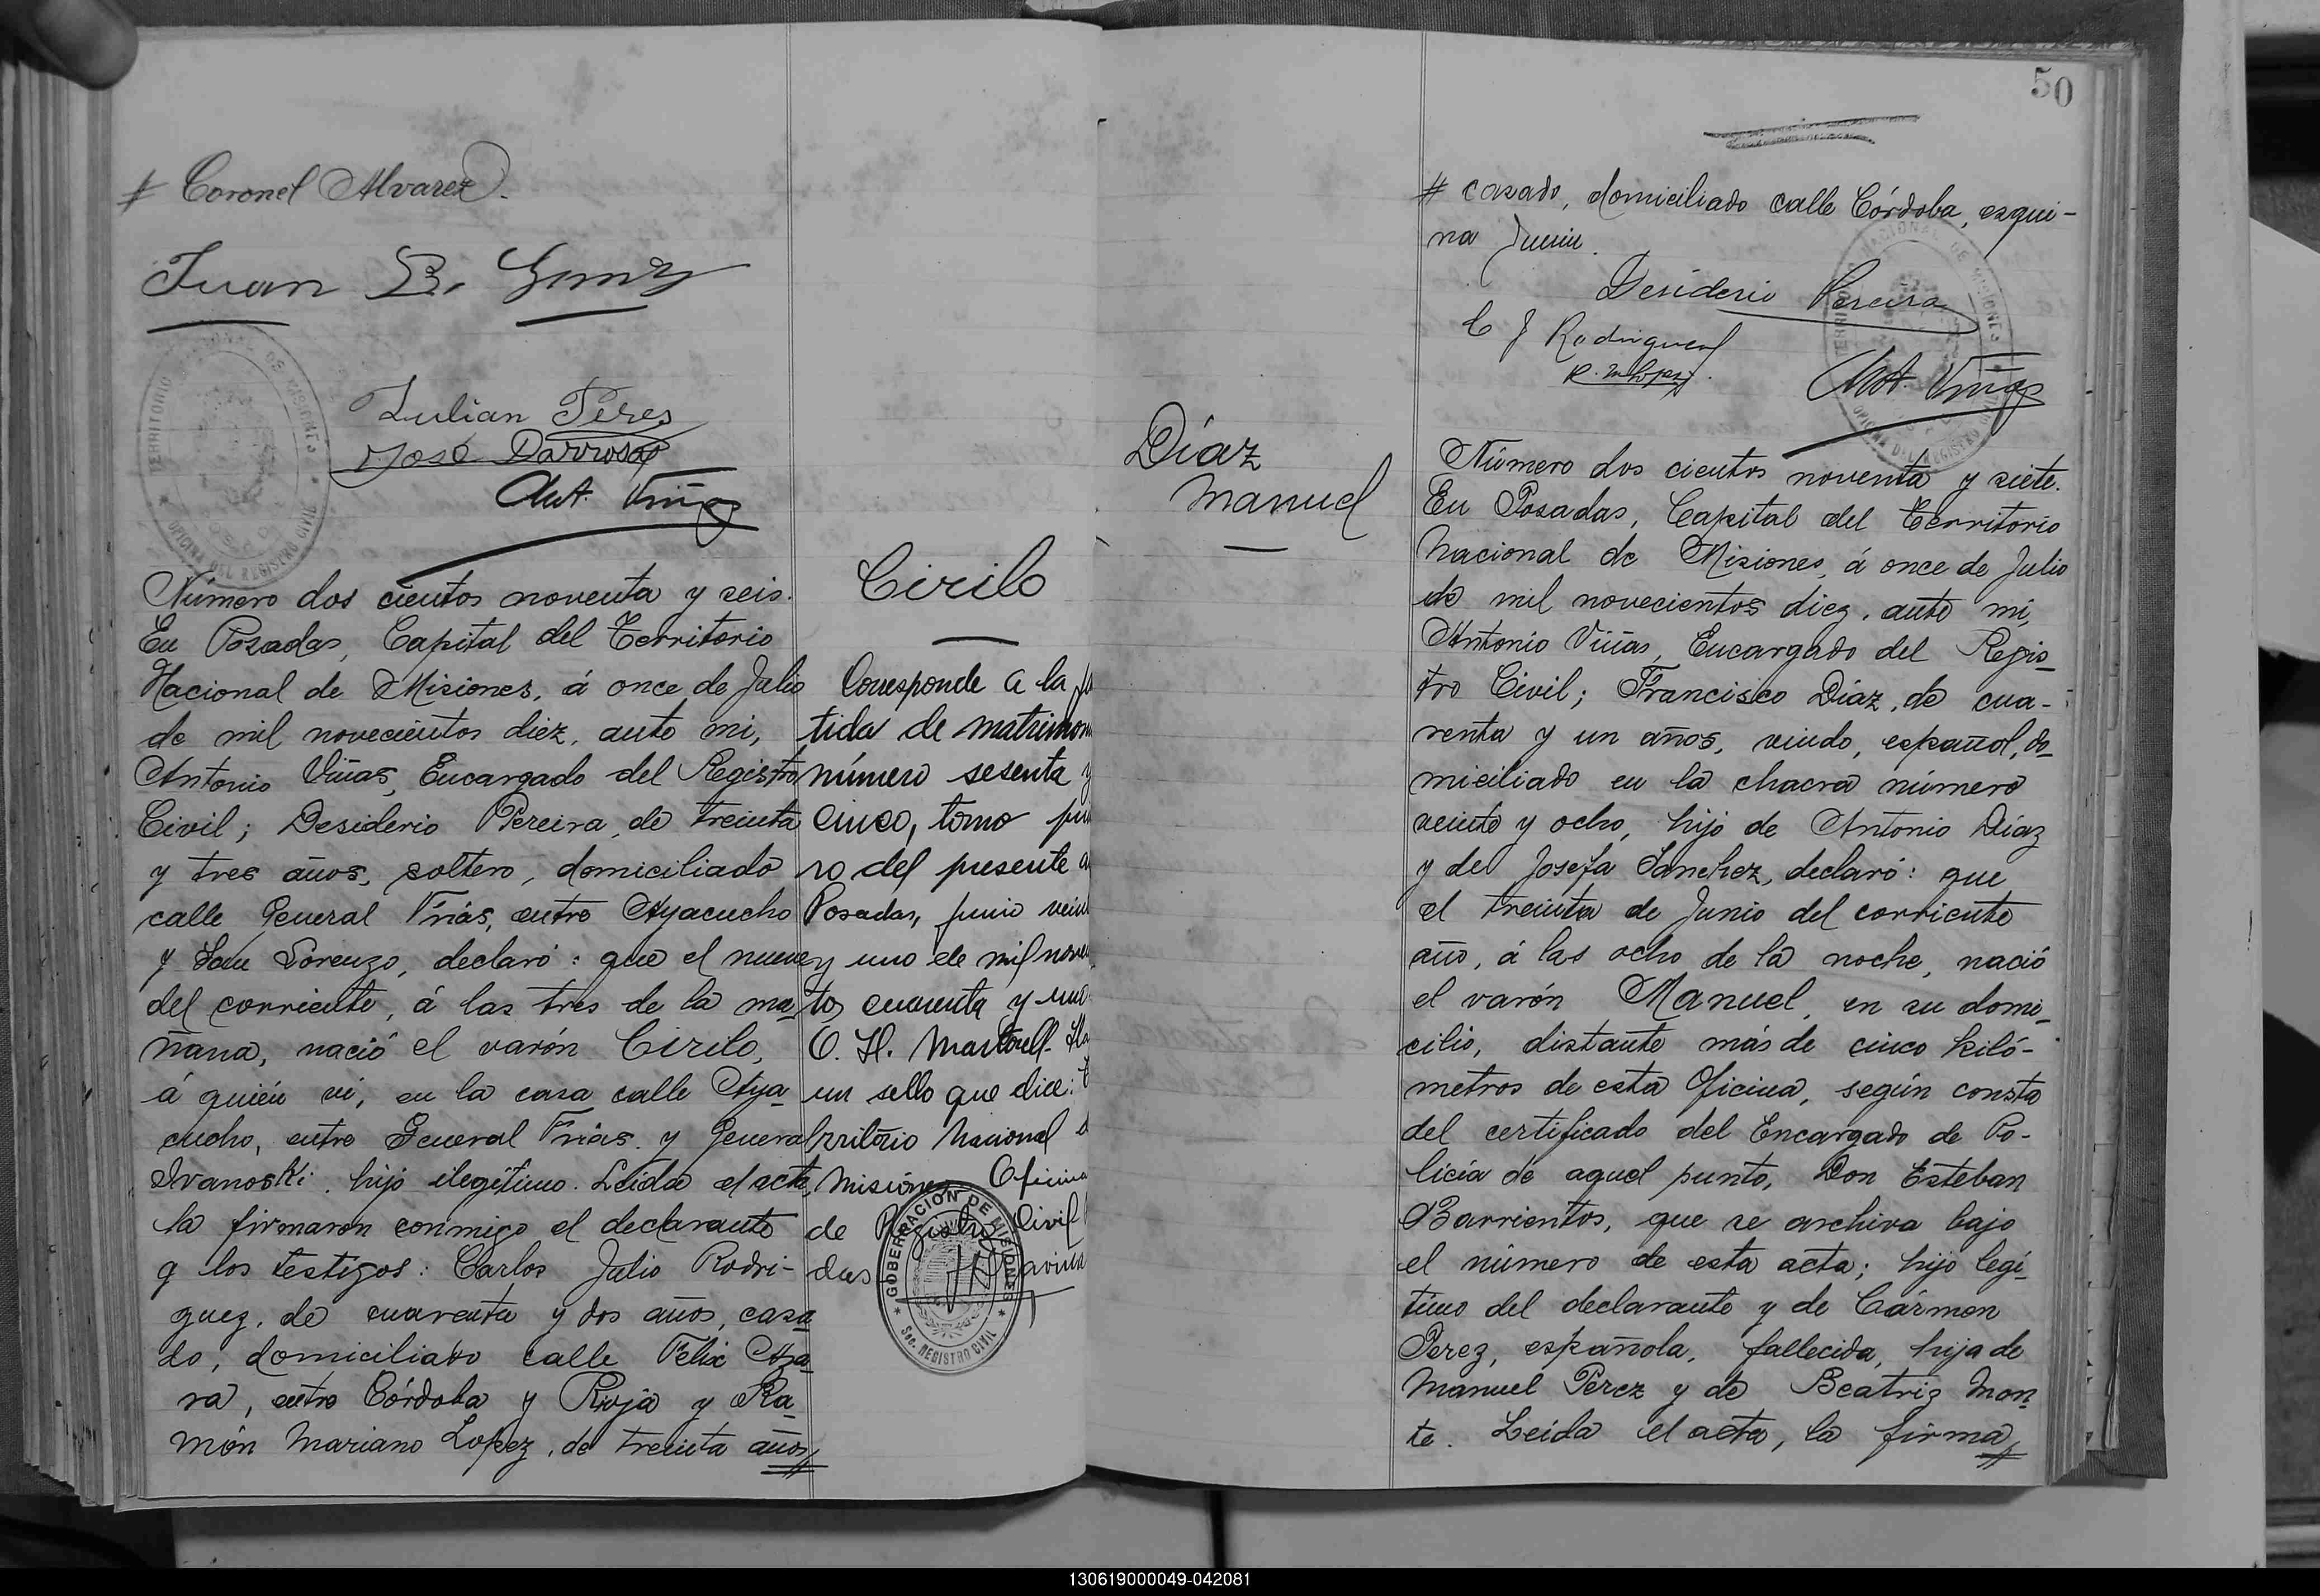 # Coronel Alvarez.
Juan B. Gomez
Julian Peres
José Darrosa
Ant. Viñas
TERRITORIO NACIONAL DE MISIONES
OFICINA DEL REGISTRO CIVIL
Número dos cientos noventa y seis.
En Posadas, Capital del Territorio
Nacional de Misiones, á once de Julio
de mil novecientos diez, ante mi,
Antonio Viñas, Encargado del Registro
Civil; Desiderio Pereira, de treinta
y tres años, soltero, domiciliado
calle General Frias, entre Ayacucho
y San Lorenzo, declaró: que el nueve
del corriente, á las tres de la ma-
ñana, nació el varón Cirilo,
á quién vi, en la casa calle Aya-
cucho, entre General Frias y General
Ivanoski, hijo ilegítimo. Leida el acta,
la firmaron conmigo el declarante
y los testigos: Carlos Julio Rodri-
guez, de cuarenta y dos años, casa-
do, domiciliado calle Felix Aza-
ra, entre Córdoba y Rioja y Ra-
món Mariano Lopez, de treinta años,#
Cirilo
Corresponde a la
tida de matrimon
número sesenta y
cinco, tomo
ro del presente
Posadas, junio
y uno de mil
tos cuarenta y uno
O. H. Martorell.
un sello que dice:
rritorio Nacional
Misiones Oficina
de Registro Civil
das
GOBERNACION DE MISIONES
Sec. REGISTRO CIVIL
50
# casado, domiciliado calle Córdoba, esqui-
na Junin.
Desiderio Pereira
C J Rodriguez
R. M. Lopez.
Ant. Viñas
TERRITORIO NACIONAL DE MISIONES
OFICINA DEL REGISTRO CIVIL
Díaz
Manuel
Número dos cientos noventa y siete.
En Posadas, Capital del Territorio
Nacional de Misiones, á once de Julio
de mil novecientos diez, ante mi,
Antonio Viñas, Encargado del Regis-
tro Civil; Francisco Díaz, de cua-
renta y un años, viudo, español, do-
miciliado en la chacra número
veinte y ocho, hijo de Antonio Díaz
y de Josefa Sanchez, declaró: que
el treinta de Junio del corriente
año, á las ocho de la noche, nació
el varón Manuel, en su domi-
cilio, distante más de cinco kiló-
metros de esta Oficina, según consta
del certificado del Encargado de Po-
licía de aquel punto, Don Esteban
Barrientos, que se archiva bajo
el número de esta acta; hijo legí-
timo del declarante y de Cármen
Perez, española, fallecida, hija de
Manuel Perez y de Beatriz Mon-
te. Leida el acta, la firma#
130619000049-042081